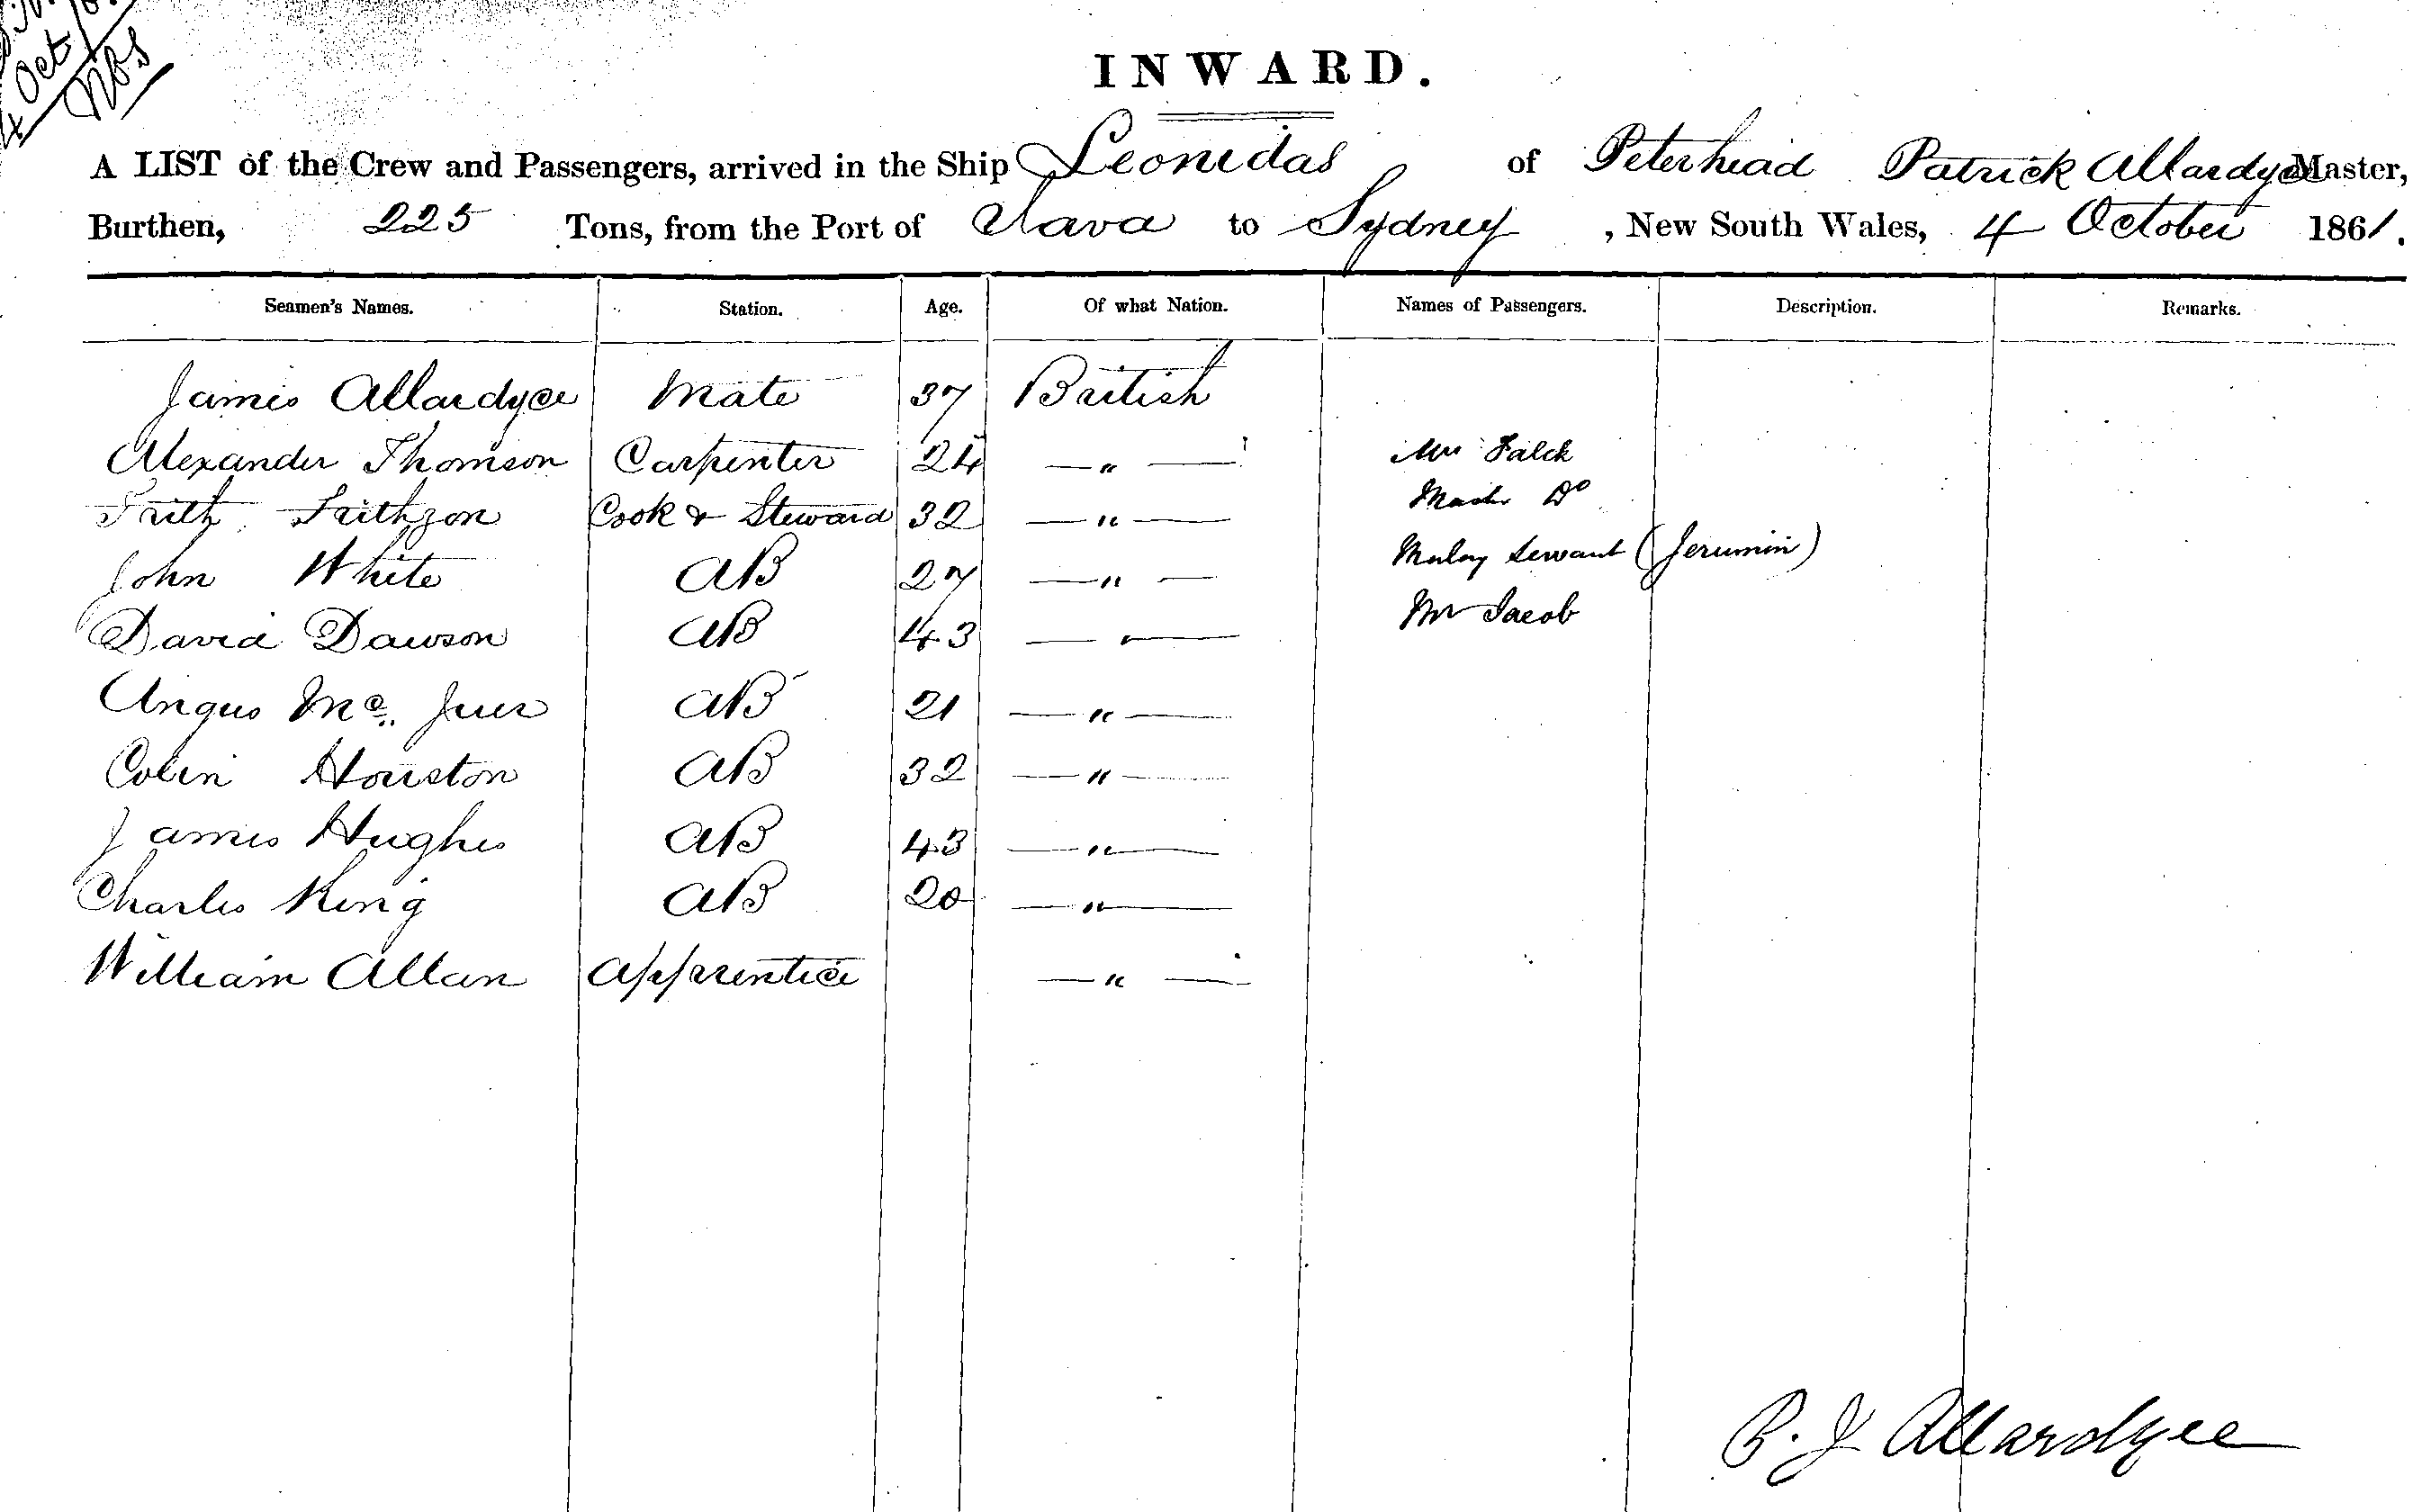 4 Oct
INWARD.
A LIST of the Crew and Passengers, arrived in the Ship Leonidas of Peterhead Patrick Allardyce Master,
Burthen, 225 Tons, from the Port of Java to Sydney, New South Wales, 4 October 1861.
Seamen's Names. Station. Age. Of what Nation. Names of Passengers. Description. Remarks.
James Allardyce Mate 37 British
Alexander Thomson Carpenter 24 — " — Mrs Falck
Frith Frithzon Cook & Steward 32 — " — Master Do
John White AB 27 — " — Malay Servant (Jerumin)
David Dawson AB 43 — " — Mr Jacob
Angus Mc AB 21 — " —
Colin Houston AB 32 — " —
James Hughes AB 43 — " —
Charles King AB 20 — " —
William Allan Apprentice — " —
P. J Allardyce